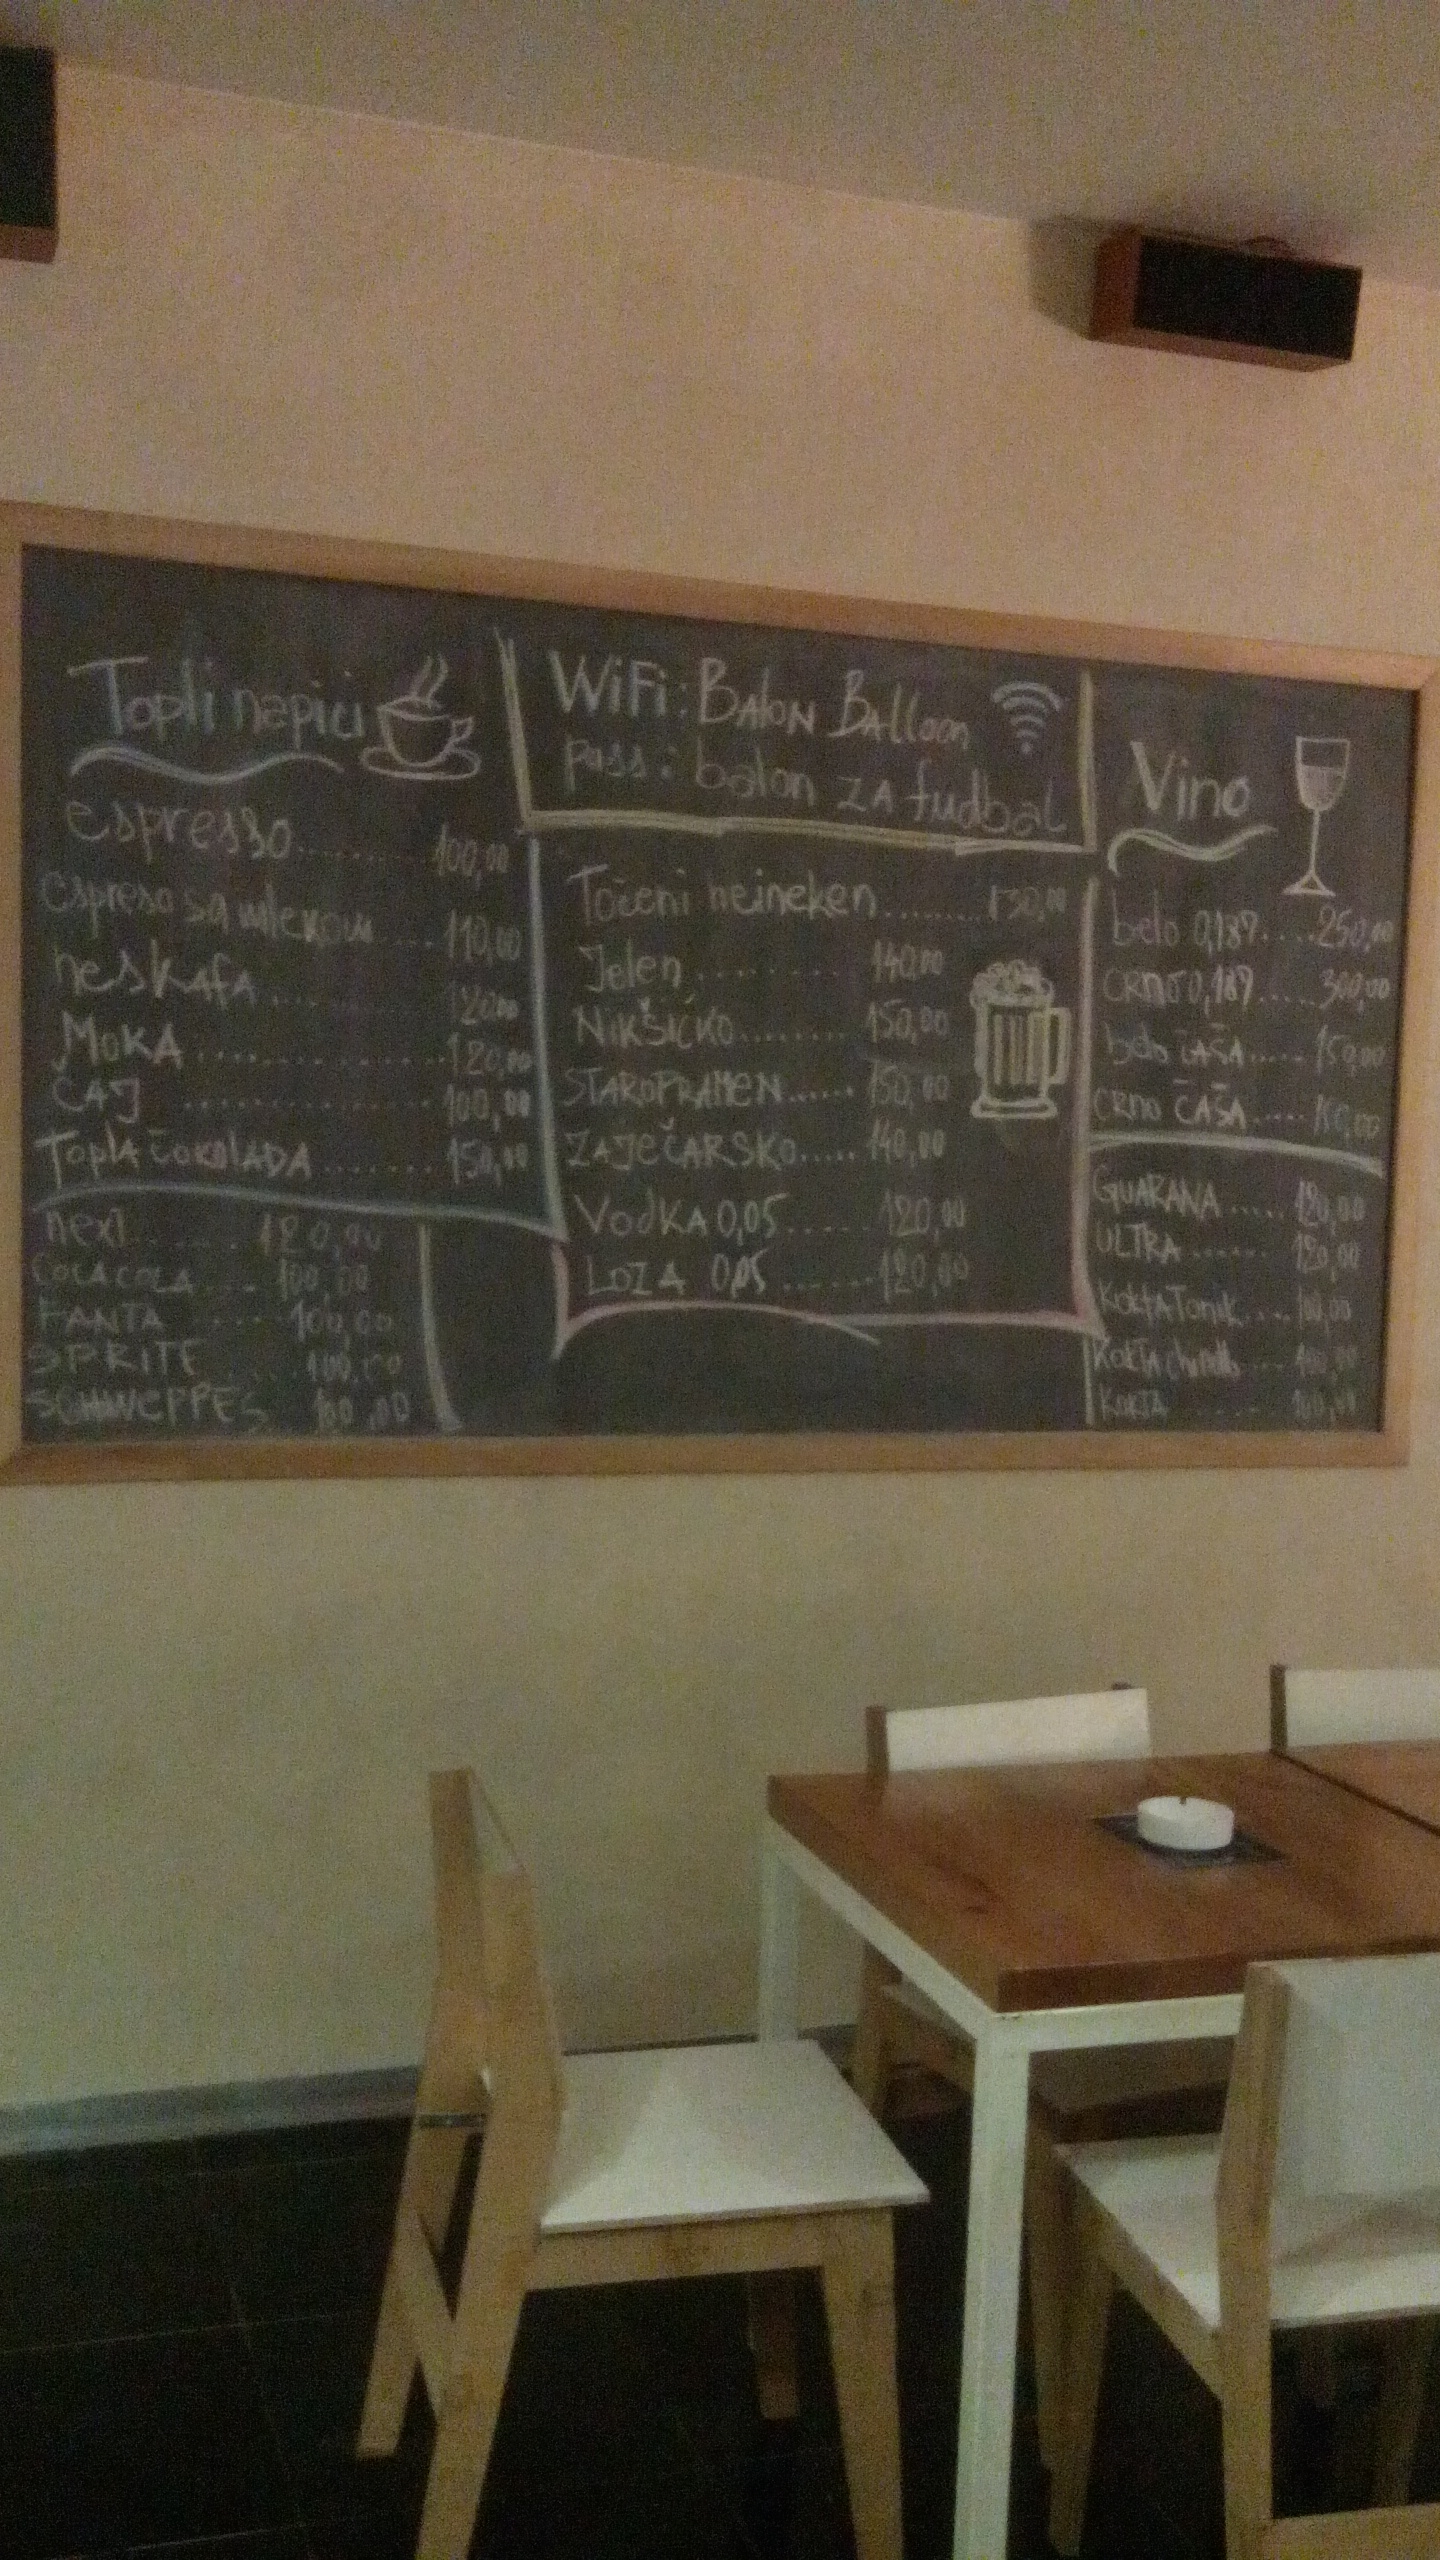 Topli napici
espresso........ 100,00
espreso sa mlekom.... 110,00
neskafa........ 120,00
MOKA.............. 120,00
ČAJ .............. 100,00
Topla čokolADA ........ 150,00
next ....... 120,00
COCA COLA.... 100,00
FANTA ..... 100,00
SPRITE ..... 100,00
SCHWEPPES. 100,00
WiFi: BAlON BAlloon
pass: balon ZA fudbal
Točeni heineken........ 130,00
Jelen......... 140,00
NikšićKo........ 150,00
STAROPRAMEN...... 150,00
ZAJeČARSKO..... 140,00
VodKA 0,05...... 120,00
LOZA 0,05 ...... 120,00
Vino
belo 0,187.....250,00
CRNO 0,187.....300,00
belo čAšA..... 150,00
CRNO ČAŠA..... 150,00
GUARANA ..... 120,00
ULTRA....... 120,00
KoktA Tonik.... 100,00
KoktA .... 100,00
KoktA ...... 100,00